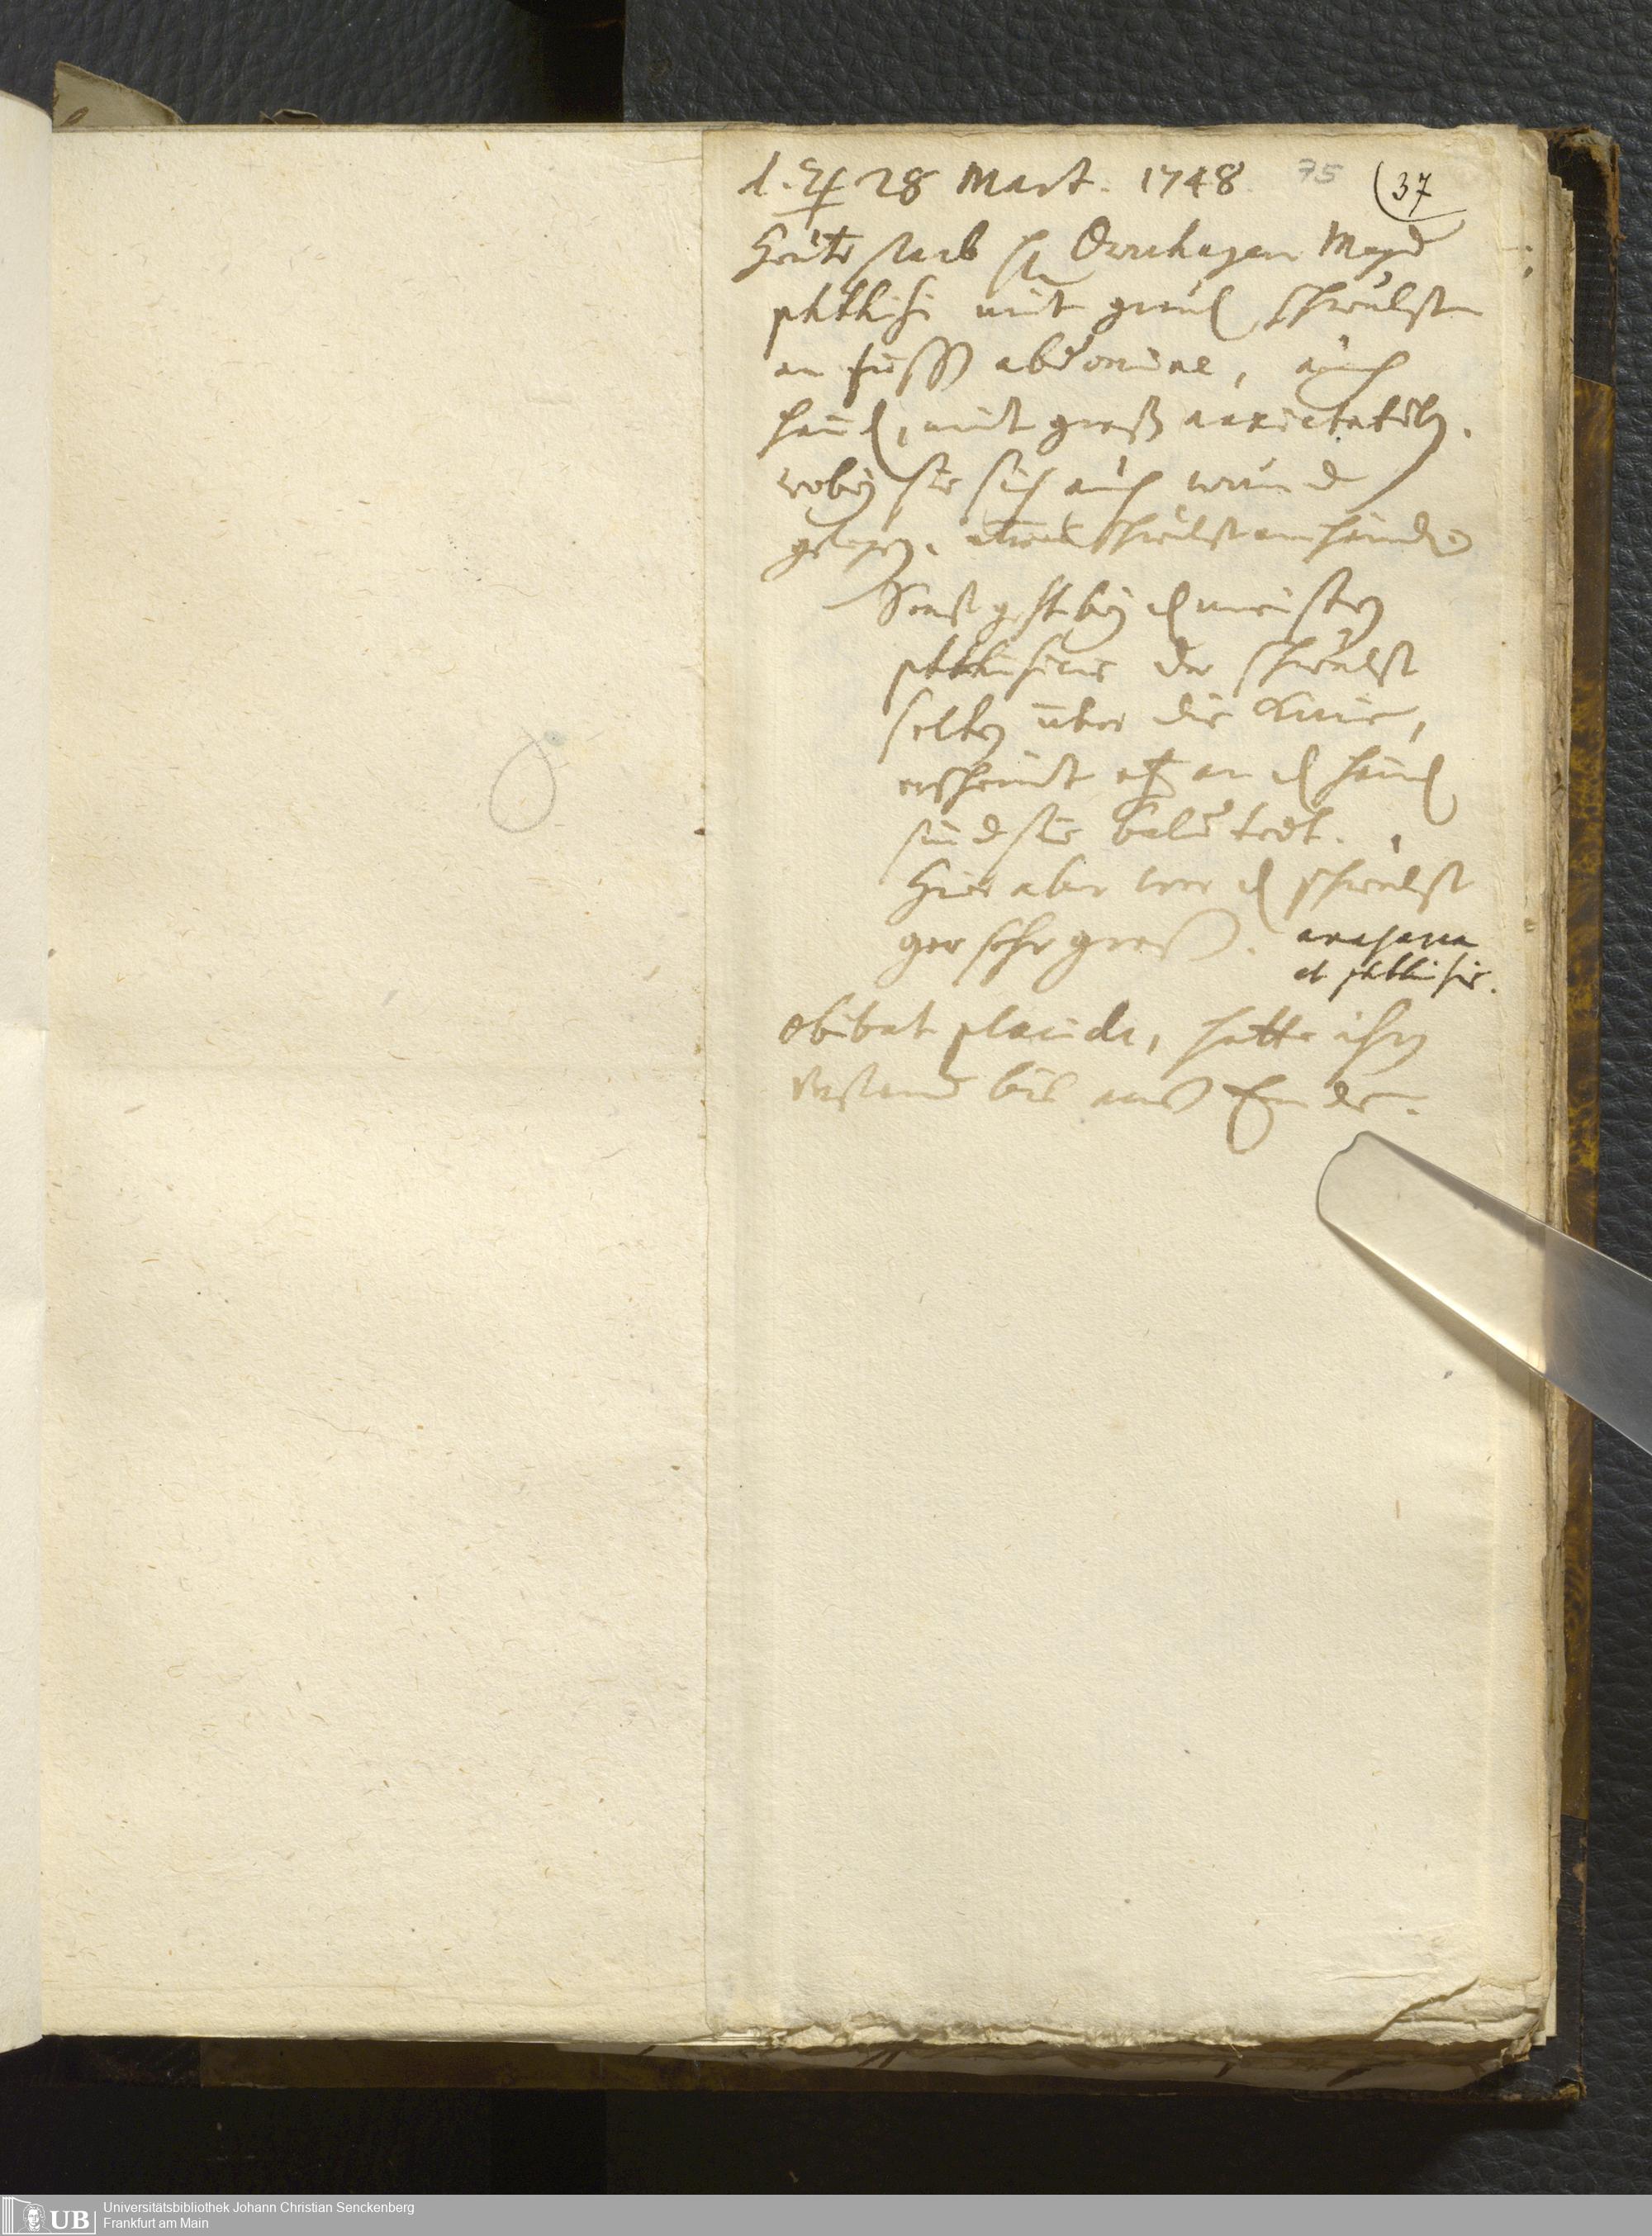 d. ♃ 28 Mart. 1748. 75 (37
Heute starb H Overhagen Magd
phthisi mit gross Schwulsten
an füssen abdomine, auch
händ, mit groß anxietatibus.
wobey sie sich auch wund
gelegen. Schwulst am händen
Sonst geht bey den meisten
phthisicis der schwulst
selten über die Knie,
erscheint er an den händen
sind sie bald todt.
Hier aber war die schwulst
gar sehr gross. anasarca
et phthisis.
Obibat placide, hatte ihren
Verstand bis ans Ende.
UB
Universitätsbibliothek Johann Christian Senckenberg
Frankfurt am Main